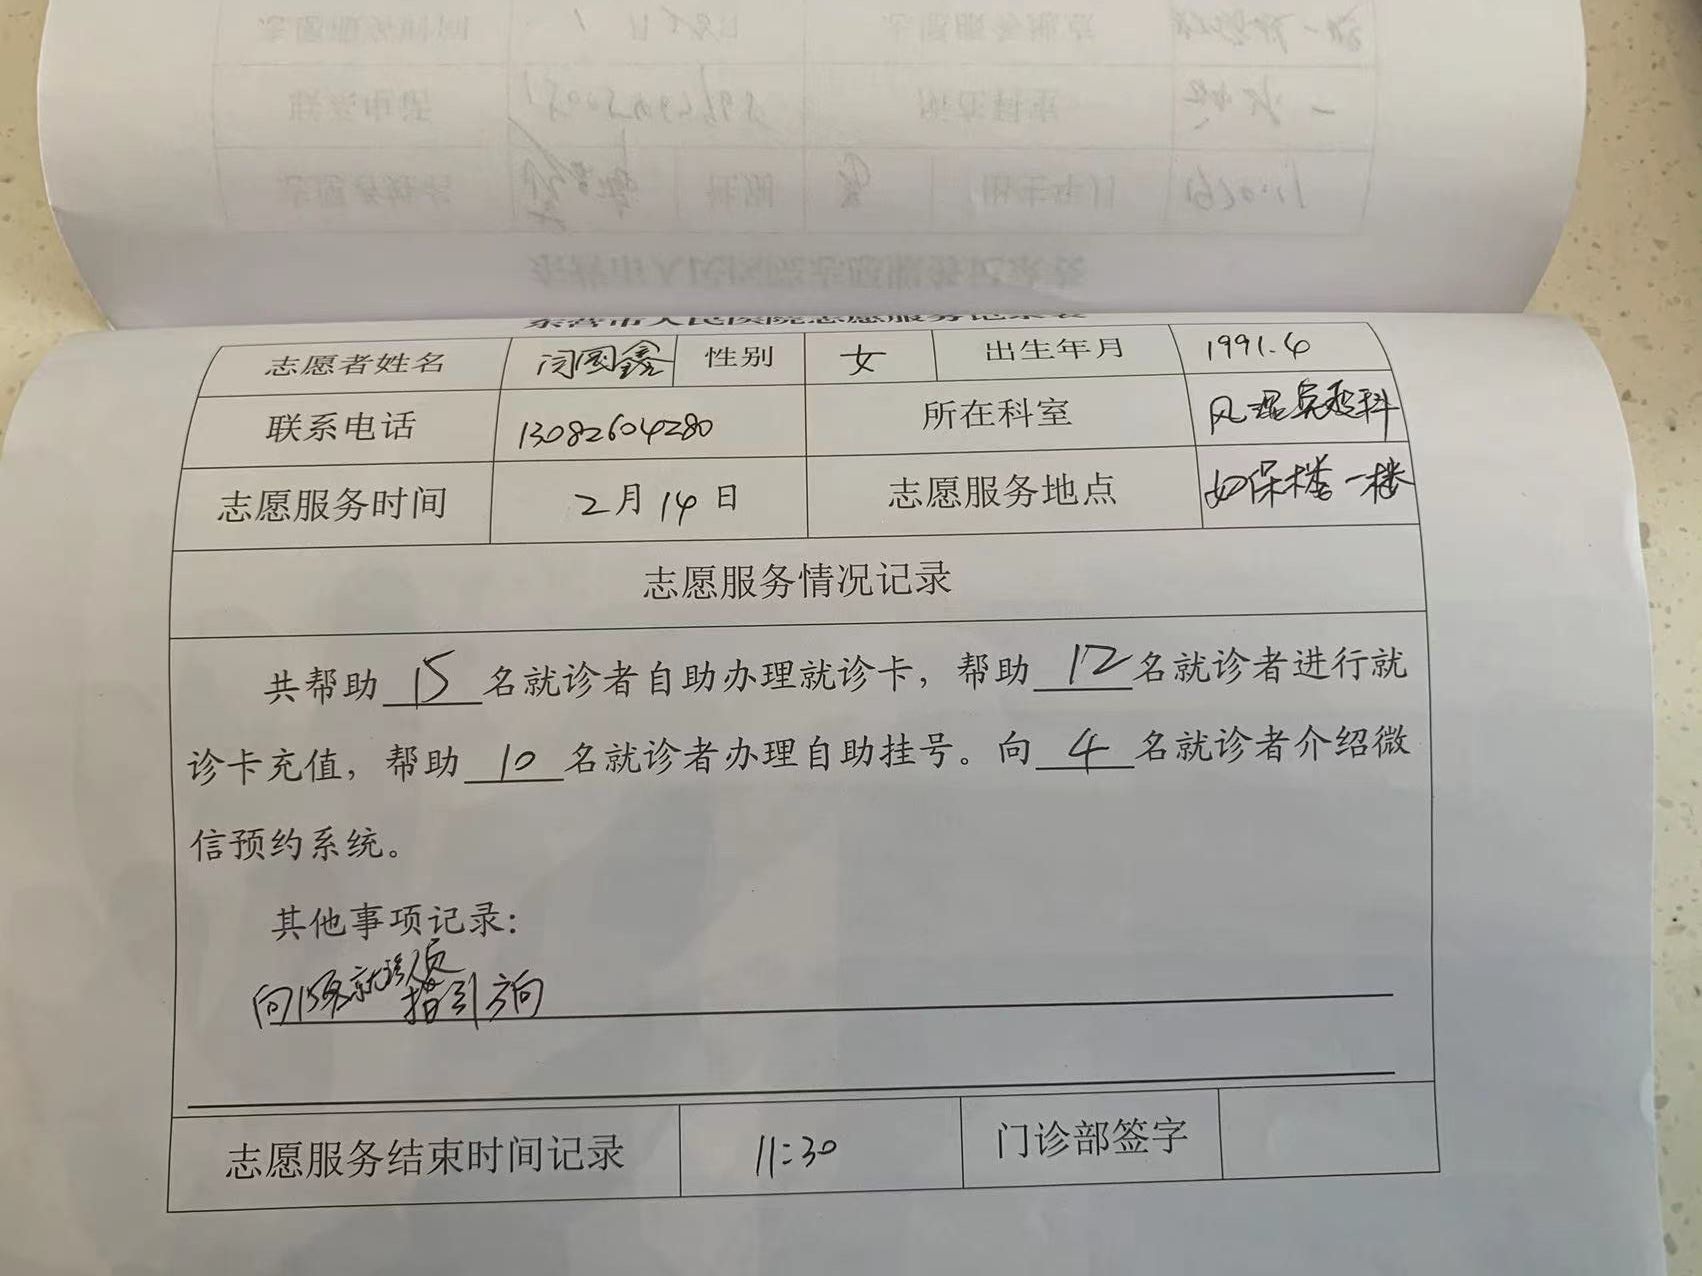 东营市人民医院志愿服务记录表
志愿者姓名 闫国鑫 性别 女 出生年月 1991.6
联系电话 13082604280 所在科室 风湿免疫科
志愿服务时间 2月14日 志愿服务地点 妇保楼一楼
志愿服务情况记录
共帮助 15 名就诊者自助办理就诊卡，帮助 12 名就诊者进行就
诊卡充值，帮助 10 名就诊者办理自助挂号。向 4 名就诊者介绍微
信预约系统。
其他事项记录：
向15名就诊人员
指引方向
志愿服务结束时间记录 11:30 门诊部签字